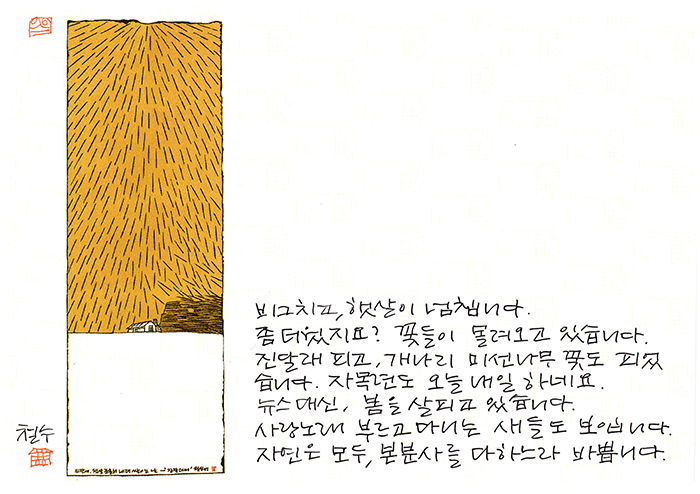 비그치고, 햇살이 넘쳅니다.
좀 더웠지요? 꽃들이 몰려오고 있습니다.
진달래 피고, 개나리 미선나무 꽃도 피었
습니다. 자목련도 오늘 내일 하네요.
뉴스 대신, 봄을 살피고 있습니다.
사랑노래 부르고 다니는 새들도 보입니다.
자연은 모두, 본분사를 다하느라 바쁩니다.
철수